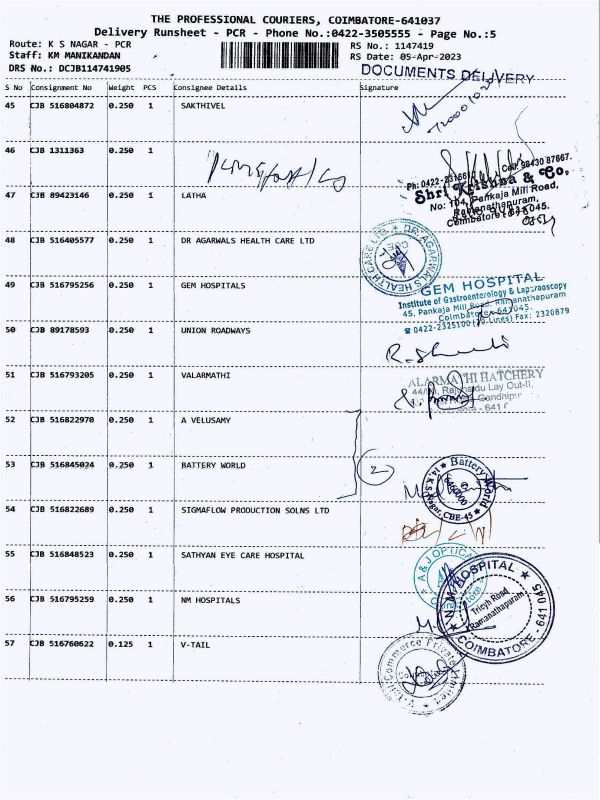 THE PROFESSIONAL COURIERS, COIMBATORE-641037
Delivery Runsheet - PCR - Phone No.:0422-3505555 - Page No.:5
Route: K S NAGAR - PCR
RS No.: 1147419
Staff: KM MANIKANDAN
RS Date: 05-Apr-2023
DRS No.: DCJB114741905
DOCUMENTS DELIVERY
S No Consignment No Weight PCS Consignee Details Signature
45 CJB 516804872 0.250 1 SAKTHIVEL
46 CJB 1311363 0.250 1
Ph: 0422-2316 Cell: 98430 87667.
Shri Krishna & Co,
No: 104, Pankaja Mill Road,
Ramanathapuram,
Coimbatore - 641 045.
47 CJB 89423146 0.250 1 LATHA
48 CJB 516405577 0.250 1 DR AGARWALS HEALTH CARE LTD
DR. AGARWAL'S HEALTH CARE LTD.
49 CJB 516795256 0.250 1 GEM HOSPITALS
GEM HOSPITAL
Institute of Gastroenterology & Laparoscopy
45, Pankaja Mill Road, Ramanathapuram
Coimbatore - 641045.
0422-2325100 (30-Lines) Fax: 2320879
50 CJB 89178593 0.250 1 UNION ROADWAYS
51 CJB 516793205 0.250 1 VALARMATHI
ALARMATHI HATCHERY
Lay Out-II,
Gandhipur
- 641 0
52 CJB 516822970 0.250 1 A VELUSAMY
53 CJB 516845024 0.250 1 BATTERY WORLD
2
Battery World
14, K.S.Nagar, CBE-45
54 CJB 516822689 0.250 1 SIGMAFLOW PRODUCTION SOLNS LTD
55 CJB 516848523 0.250 1 SATHYAN EYE CARE HOSPITAL
A & J OPTICAL
56 CJB 516795259 0.250 1 NM HOSPITALS
N.M. HOSPITAL
Trichy Road
Ramanathapuram
COIMBATORE - 641 045
57 CJB 516760622 0.125 1 V-TAIL
V-Tail Commerce Private Limited